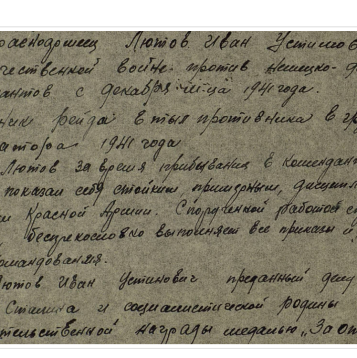 раснодреец Лютов Иван Устимов
чественной войне против немецко-ф
антов с декабря м-ца 1941 года.
ник рейда в тыл противника в гр
атора 1941 года
Лютов за время пребывания в комендан
показал себя стойким, примерным, дисципл
м Красной Армии. С порученной работой сп
беспрекословно выполняет все приказы и
омандования.
Лютов Иван Устинович преданный делу
Сталина и социалистической родины
тельственной награды медалью „За от